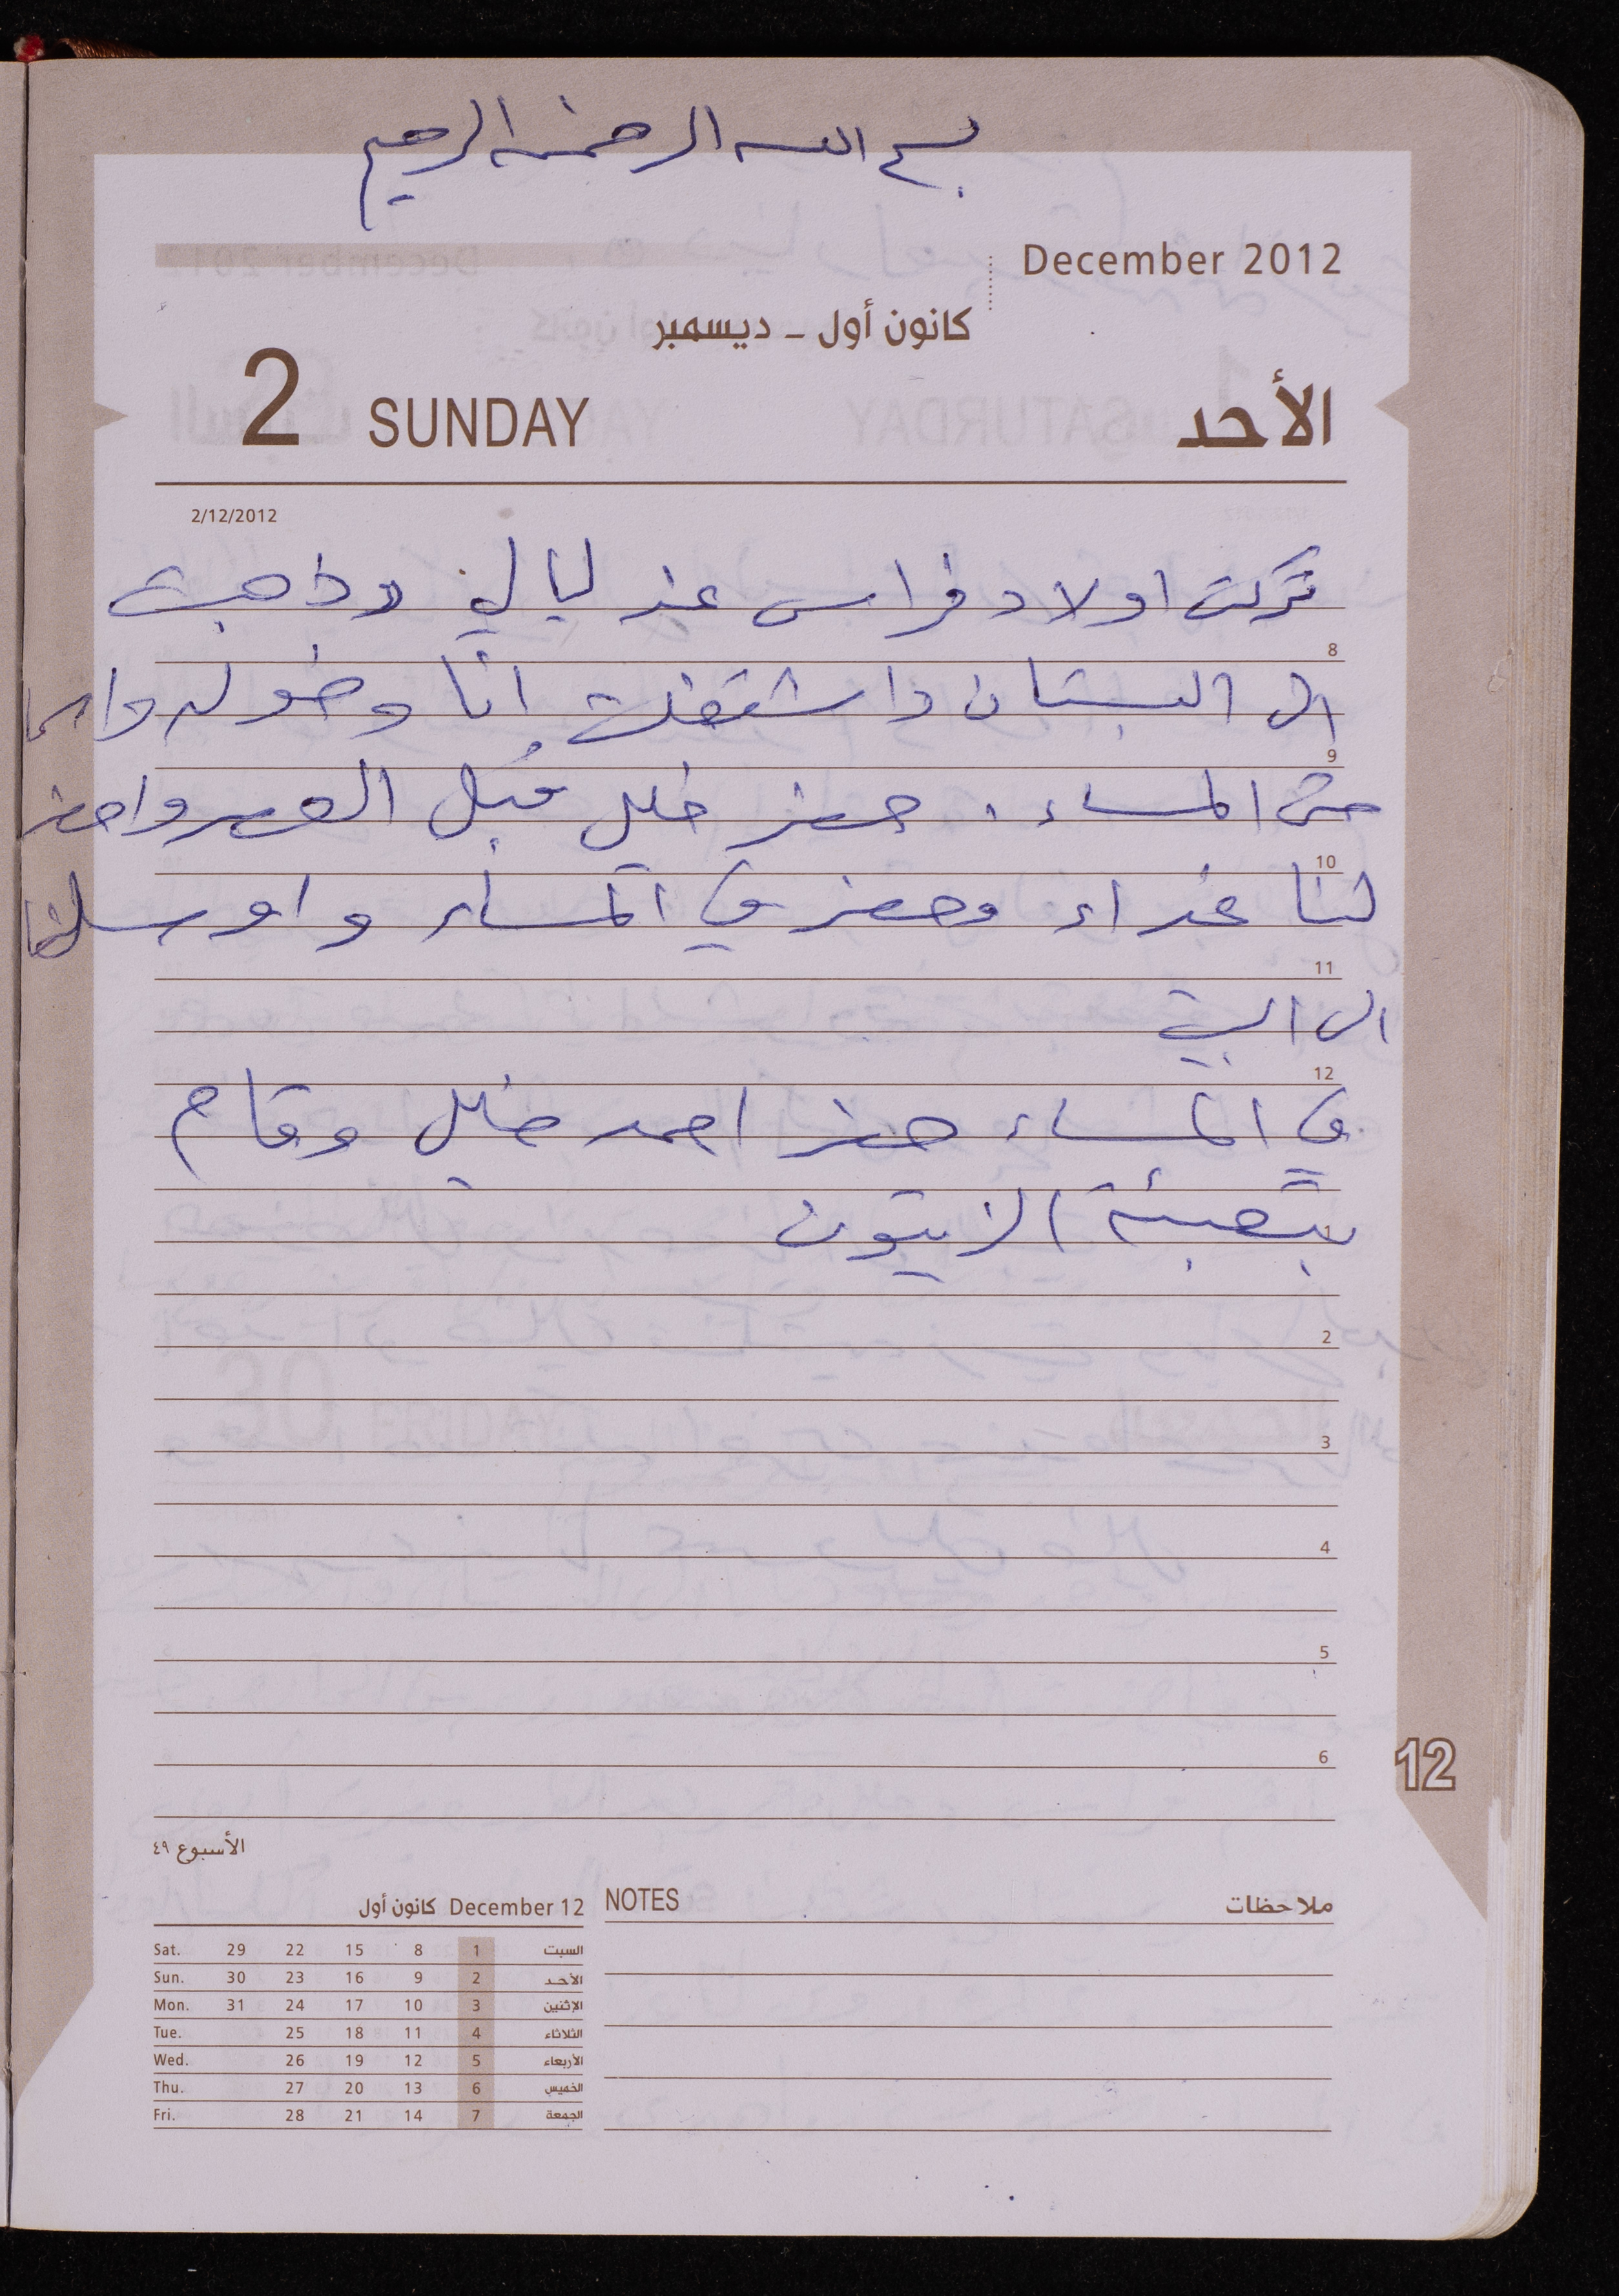 بسم الله الرحمن الرحيم
December 2012
كانون أول - ديسمبر
2 SUNDAY الأحد
2/12/2012
تركت اولاد فراس عند ليالي وذهبت
8
الى البستان واشتغلت انا وخوله واسما
9
حتى المساء . حضر خليل قبل العصر واحضر
10
لنا غداء وحضر في المساء واوصلنا
11
الى البيت
12
في المساء حضر احمد خليل وقام
بتعبئة الزيتون
1
2
3
4
5
6
12
الأسبوع ٤٩
كانون أول December 12
Sat. 29 22 15 8 1 السبت
Sun. 30 23 16 9 2 الأحد
Mon. 31 24 17 10 3 الإثنين
Tue. 25 18 11 4 الثلاثاء
Wed. 26 19 12 5 الأربعاء
Thu. 27 20 13 6 الخميس
Fri. 28 21 14 7 الجمعة
NOTES ملاحظات